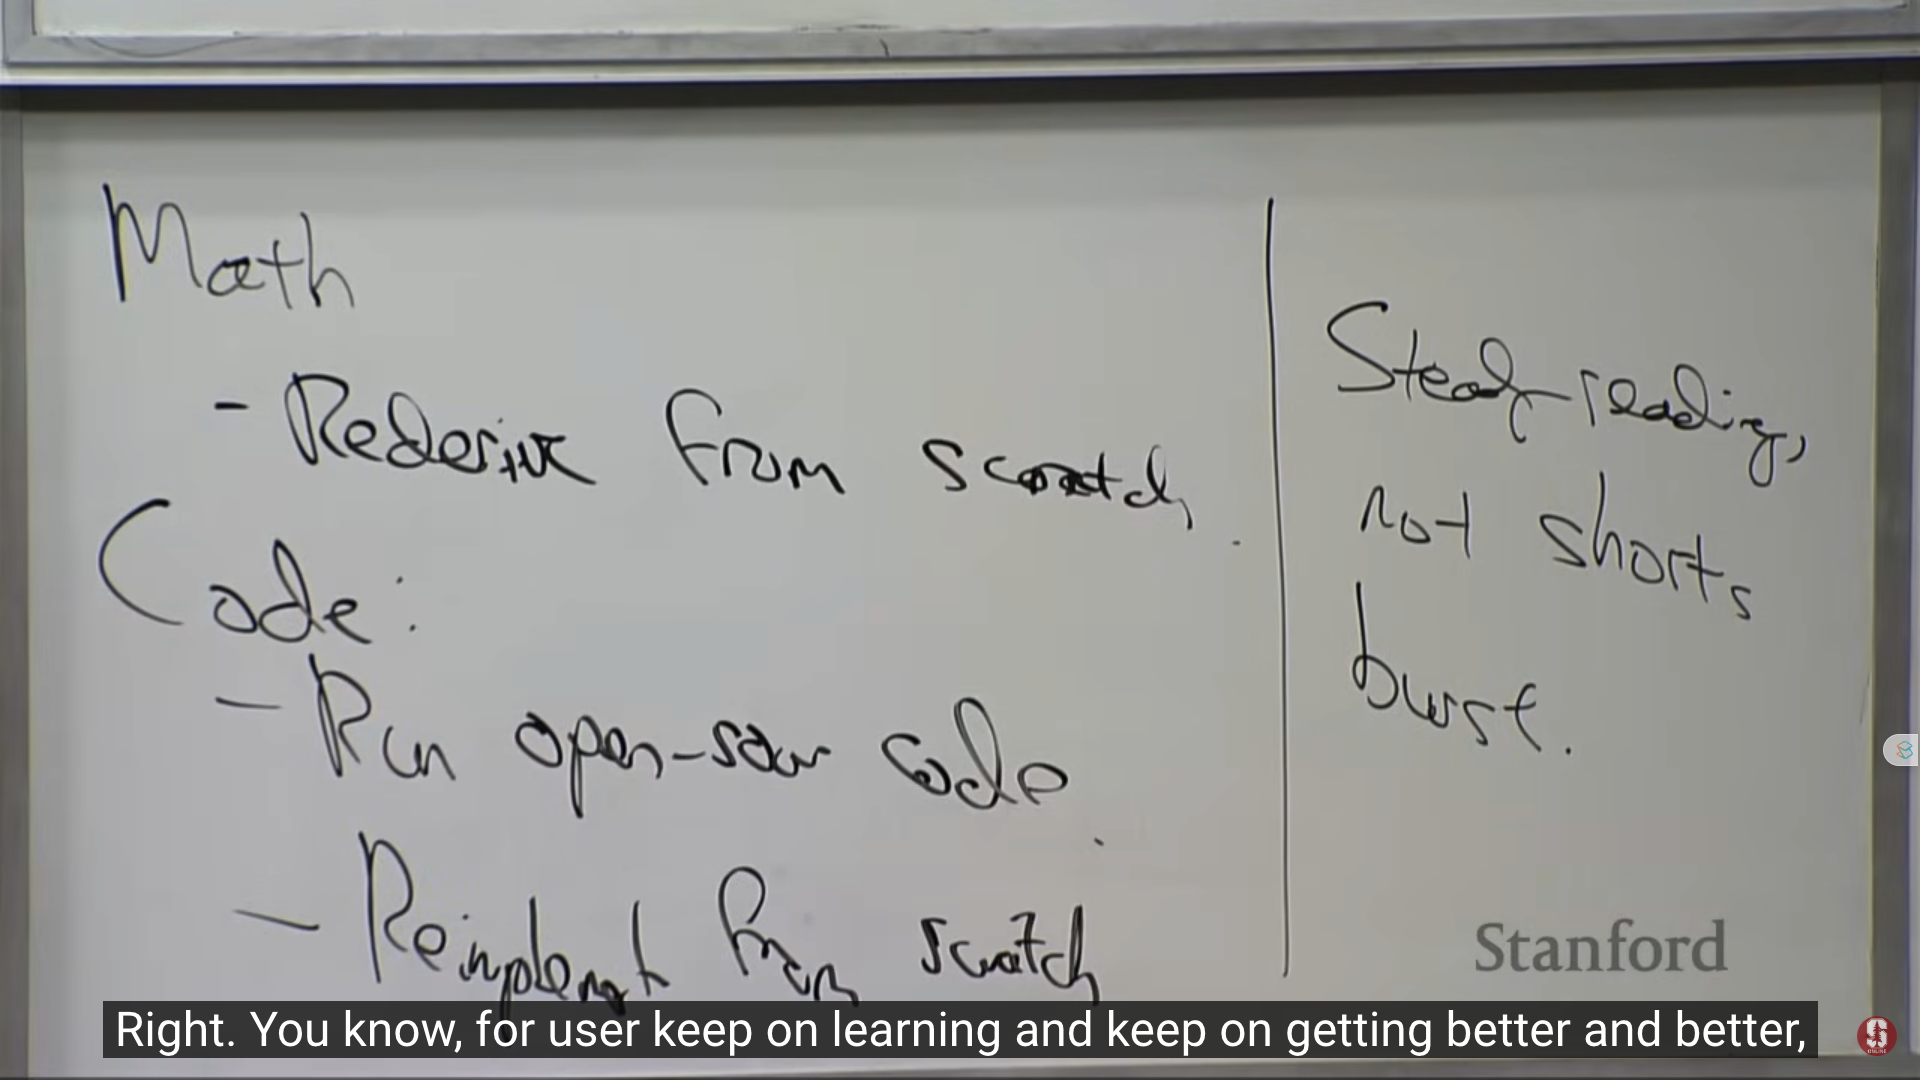 Math
- Rederive from scratch.
Code:
- Run open-sour code.
- Reimplement from scratch
Steady reading,
not shorts
burst.
Stanford
Right. You know, for user keep on learning and keep on getting better and better,